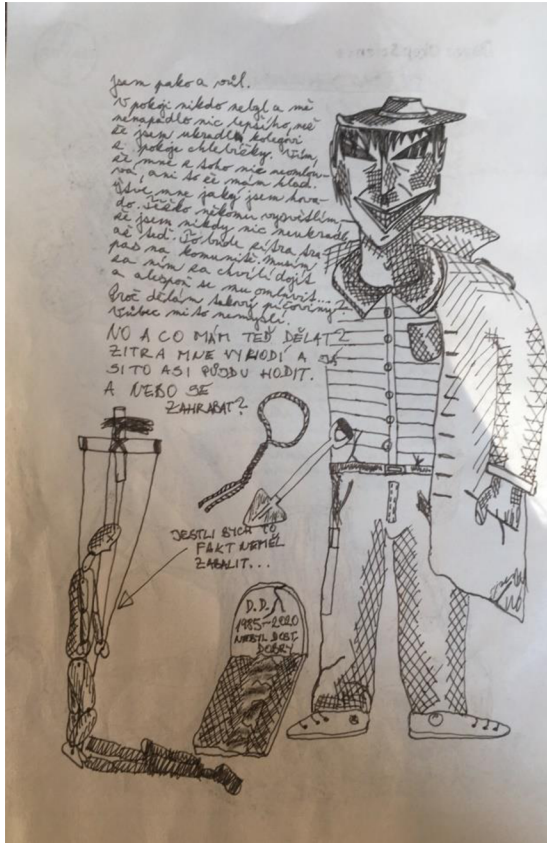 jsem pako a vůl.
V pokoji nikdo nebyl a mě
nenapadlo nic lepšího, než
že jsem ukradl kolegovi
z pokoje chlebíčky. Vím,
že mne z toho nic neomlou-
vá, ani to že mám hlad.
Štve mne jaký jsem hova-
do. Těžko někomu vysvětlím
že jsem nikdy nic neukradl
až teď. To bude zítra sra
na komunitě. Musím
za ním za chvíli dojít
a alespoň se mu omluvit...
Proč dělám takový pičoviny?
Vůbec mi to nemyslí.
NO A CO MÁM TEĎ DĚLAT?
ZITRA MNE VYHODÍ A JÁ
SI TO ASI PŮJDU HODIT.
A NEBO SE
ZAHRABAT?
JESTLI BYCH TO
FAKT NEMĚL
ZABALIT...
D.D.
1985-2020
NEBYL DOST
DOBRÝ